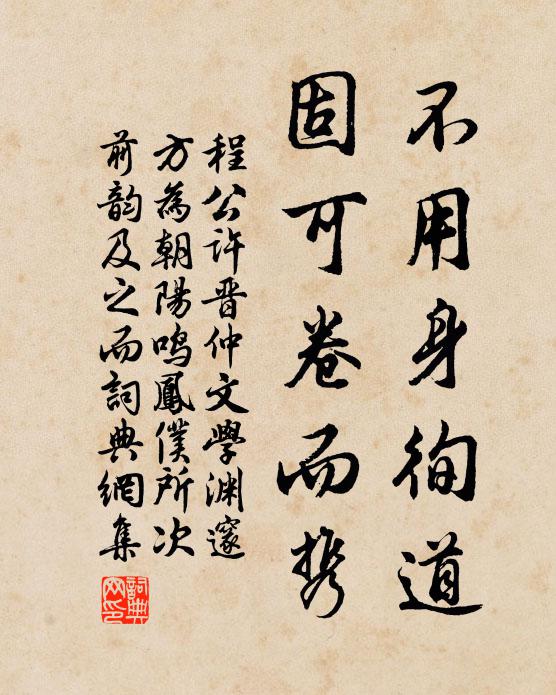 不用身徇道
固可卷而携
程公许晋仲文學渊邃
方為朝陽鳴鳳僕所次
前韵及之而詞典網集
詞典
网印